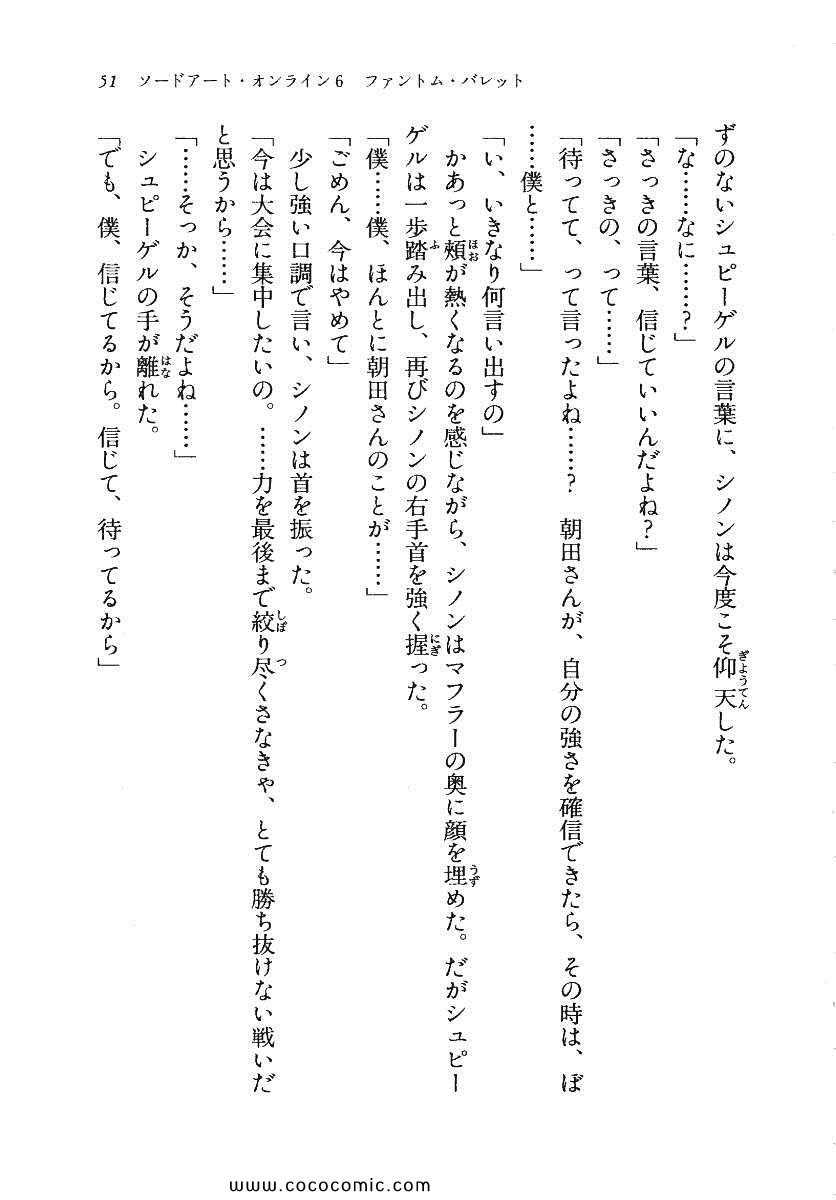 51 ソードアート・オンライン6 ファントム・バレット
ずのないシュピーゲルの言葉に、シノンは今度こそ仰天した。
「な……なに……？」
「さっきの言葉、信じていいんだよね？」
「さっきの、って……」
「待ってて、って言ったよね……？　朝田さんが、自分の強さを確信できたら、その時は、ぼ
……僕と……」
「い、いきなり何言い出すの」
かあっと頬が熱くなるのを感じながら、シノンはマフラーの奥に顔を埋めた。だがシュピー
ゲルは一歩踏み出し、再びシノンの右手首を強く握った。
「僕……僕、ほんとに朝田さんのことが……」
「ごめん、今はやめて」
少し強い口調で言い、シノンは首を振った。
「今は大会に集中したいの。……力を最後まで絞り尽くさなきゃ、とても勝ち抜けない戦いだ
と思うから……」
「……そっか、そうだよね……」
シュピーゲルの手が離れた。
「でも、僕、信じてるから。信じて、待ってるから」
www.cococomic.com